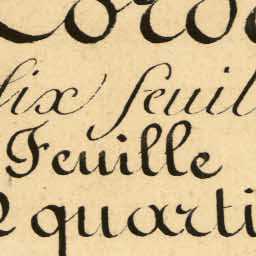 Cord
six feuil
Feuille
e quarti